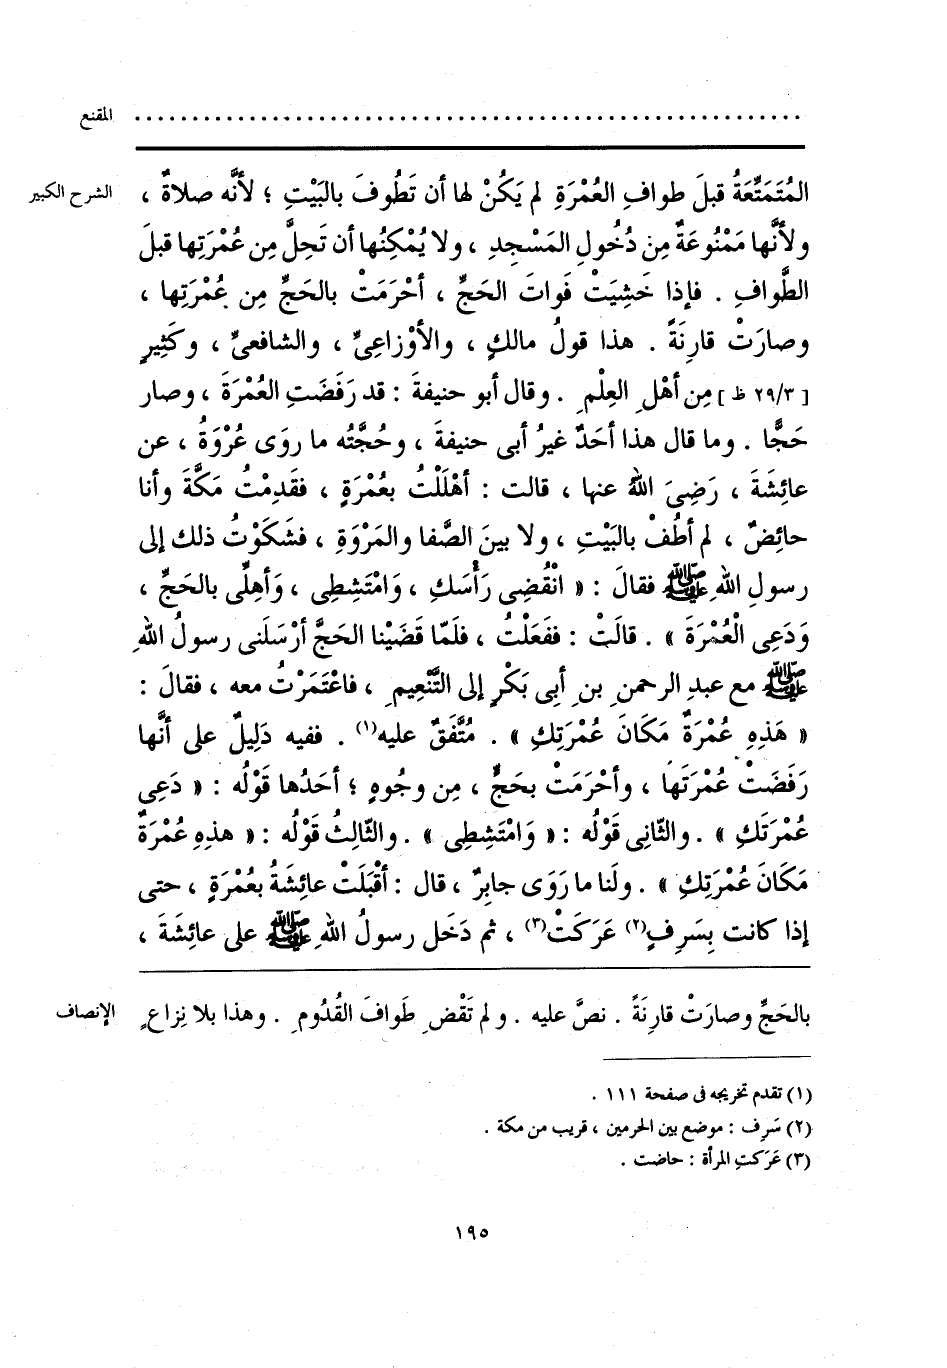 المقنع ............................................................
الشرح الكبير المُتَمَتِّعَةُ قبلَ طوافِ العُمْرَةِ لم يَكُنْ لها أن تَطُوفَ بالبَيْتِ ؛ لأنَّه صلاةٌ ،
ولأنَّها مَمْنُوعَةٌ مِن دُخُولِ المَسْجِدِ ، ولا يُمْكِنُها أن تَحِلَّ مِن عُمْرَتِها قبلَ
الطَّوافِ . فإذا خَشِيَتْ فَواتَ الحَجِّ ، أحْرَمَتْ بالحَجِّ مِن عُمْرَتِها ،
وصارَتْ قارِنَةً . هذا قولُ مالكٍ ، والأوْزاعِىِّ ، والشافعىِّ ، وكَثِيرٍ
[ ٢٩/٣ ظ ] مِن أهْلِ العِلْمِ . وقال أبو حنيفةَ : قد رَفَضَتِ العُمْرَةَ ، وصار
حَجًّا . وما قال هذا أحَدٌ غيرُ أبى حنيفةَ ، وحُجَّتُه ما روَى عُرْوَةُ ، عن
عائِشَةَ ، رَضِىَ اللهُ عنها ، قالت : أهْلَلْتُ بعُمْرَةٍ ، فقَدِمْتُ مَكَّةَ وأنا
حائِضٌ ، لم أطُفْ بالبَيْتِ ، ولا بينَ الصَّفا والمَرْوَةِ ، فشَكَوْتُ ذلك إلى
رسولِ اللهِ ﷺ فقالَ : « انْقُضِى رَأْسَكِ ، وَامْتَشِطِى ، وَأهِلِّى بالحَجِّ ،
وَدَعِى الْعُمْرَةَ » . قالَتْ : ففَعَلْتُ ، فلَمّا قَضَيْنا الحَجَّ أرْسَلَنى رسولُ اللهِ
ﷺ مع عبدِ الرحمنِ بنِ أبِى بَكْرٍ إلى التَّنْعِيمِ ، فاعْتَمَرْتُ معه ، فقالَ :
« هَذِهِ عُمْرَةٌ مَكَانَ عُمْرَتِكِ » . مُتَّفَقٌ عليه(١) . ففيه دَلِيلٌ على أنَّها
رَفَضَتْ عُمْرَتَها ، وأحْرَمَتْ بحَجٍّ ، مِن وجُوهٍ ؛ أحَدُها قَوْلُه : « دَعِى
عُمْرَتَكِ » . والثّانِى قَوْلُه : « وَامْتَشِطِى » . والثّالِثُ قَوْلُه : « هذِهِ عُمْرَةٌ
مَكَانَ عُمْرَتِكِ » . ولَنا ما رَوَى جابِرٌ ، قال : أقْبَلَتْ عائِشَةُ بعُمْرَةٍ ، حتى
إذا كانت بِسَرِفٍ(٢) عَرَكَتْ(٣) ، ثم دَخَل رسولُ اللهِ ﷺ على عائِشَةَ ،
الإنصاف بالحَجِّ وصارَتْ قارِنَةً . نصَّ عليه . ولم تَقْضِ طَوافَ القُدُومِ . وهذا بلا نِزاعٍ
(١) تقدم تخريجه فى صفحة ١١١ .
(٢) سَرِف : موضع بين الحرمين ، قريب من مكة .
(٣) عَرَكتِ المرأة : حاضت .
١٩٥